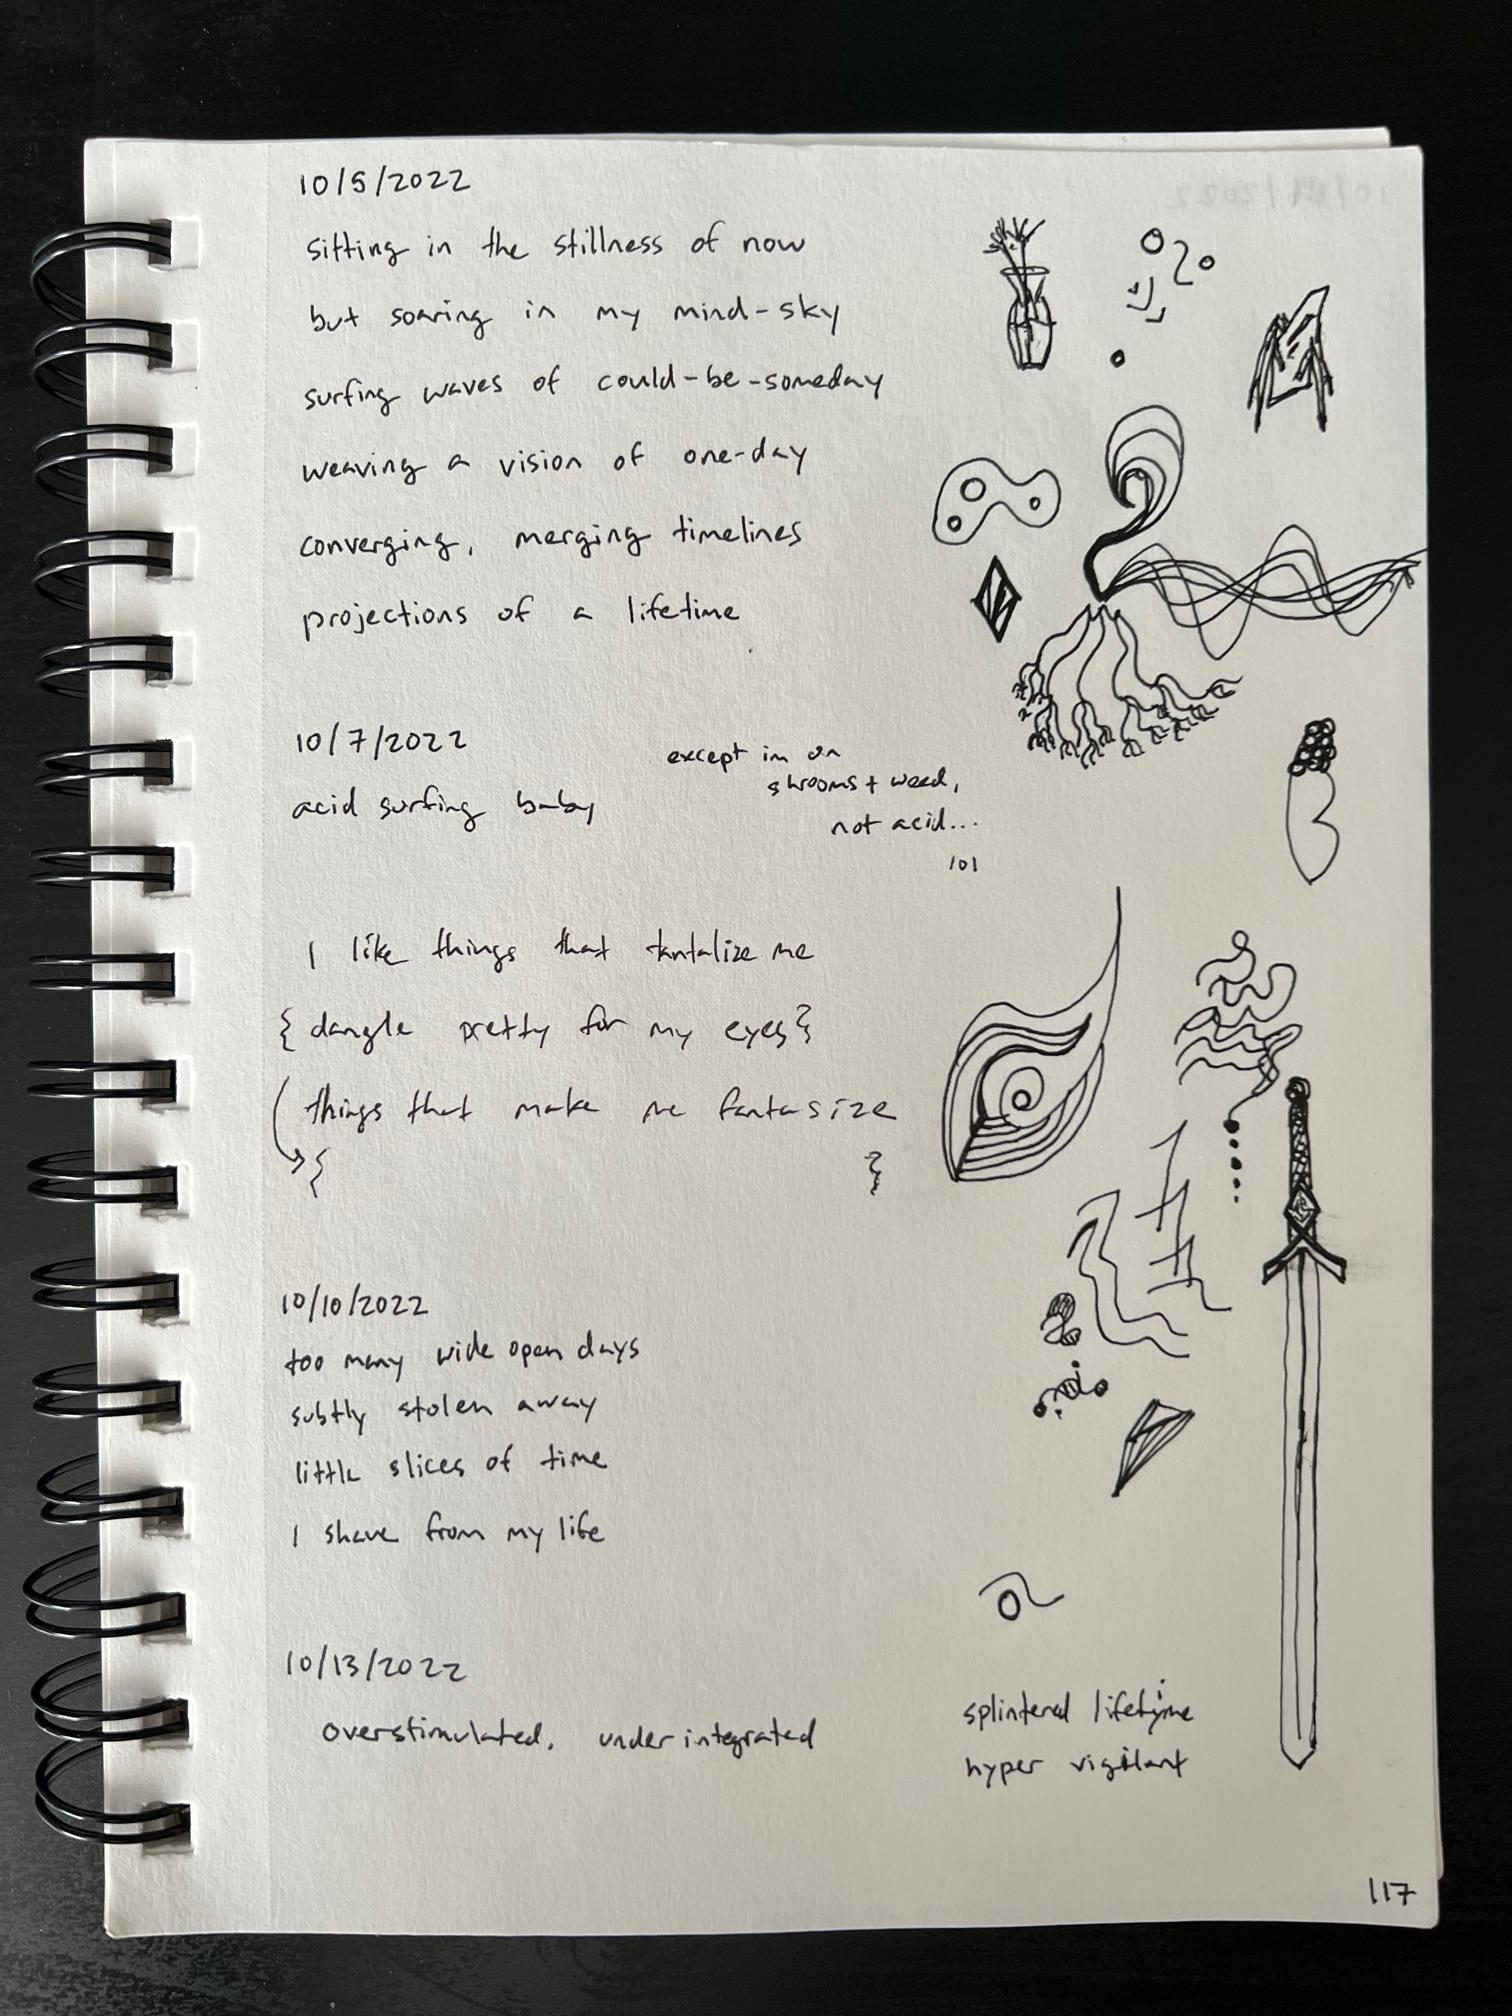 10/5/2022
sitting in the stillness of now
but soaring in my mind-sky
surfing waves of could-be-someday
weaving a vision of one-day
converging, merging timelines
projections of a lifetime
10/7/2022
acid surfing baby
except im on
shrooms + weed,
not acid...
lol
I like things that tantalize me
{dangle pretty for my eyes}
things that make me fantasize
{ }
10/10/2022
too many wide open days
subtly stolen away
little slices of time
I shave from my life
10/13/2022
overstimulated, under integrated
splintered lifetime
hyper vigilant
117